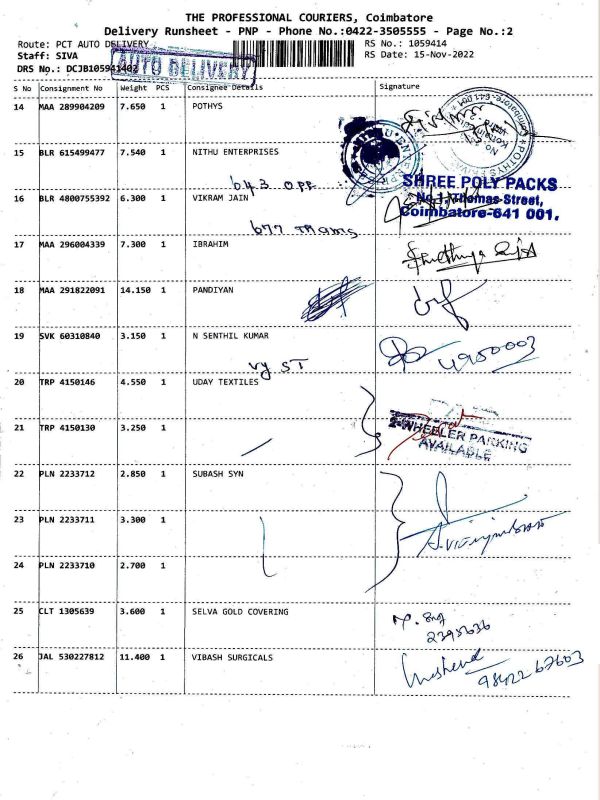 THE PROFESSIONAL COURIERS, Coimbatore
Delivery Runsheet - PNP - Phone No.:0422-3505555 - Page No.:2
Route: PCT AUTO DELIVERY
RS No.: 1059414
Staff: SIVA
RS Date: 15-Nov-2022
DRS No.: DCJB105941402
AUTO DELIVERY
S No Consignment No Weight PCS Consignee Details Signature
14 MAA 289904209 7.650 1 POTHYS
15 BLR 615499477 7.540 1 NITHU ENTERPRISES
643 OPP
SHREE POLY PACKS
16 BLR 4800755392 6.300 1 VIKRAM JAIN
Thomas Street,
Coimbatore-641 001.
677 Thomas
17 MAA 296004339 7.300 1 IBRAHIM
18 MAA 291822091 14.150 1 PANDIYAN
19 SVK 60310840 3.150 1 N SENTHIL KUMAR
4950003
Vy ST
20 TRP 4150146 4.550 1 UDAY TEXTILES
21 TRP 4150130 3.250 1
2-WHEELER PARKING
AVAILABLE
22 PLN 2233712 2.850 1 SUBASH SYN
23 PLN 2233711 3.300 1
24 PLN 2233710 2.700 1
25 CLT 1305639 3.600 1 SELVA GOLD COVERING
2395636
26 JAL 530227812 11.400 1 VIBASH SURGICALS
98422 67603